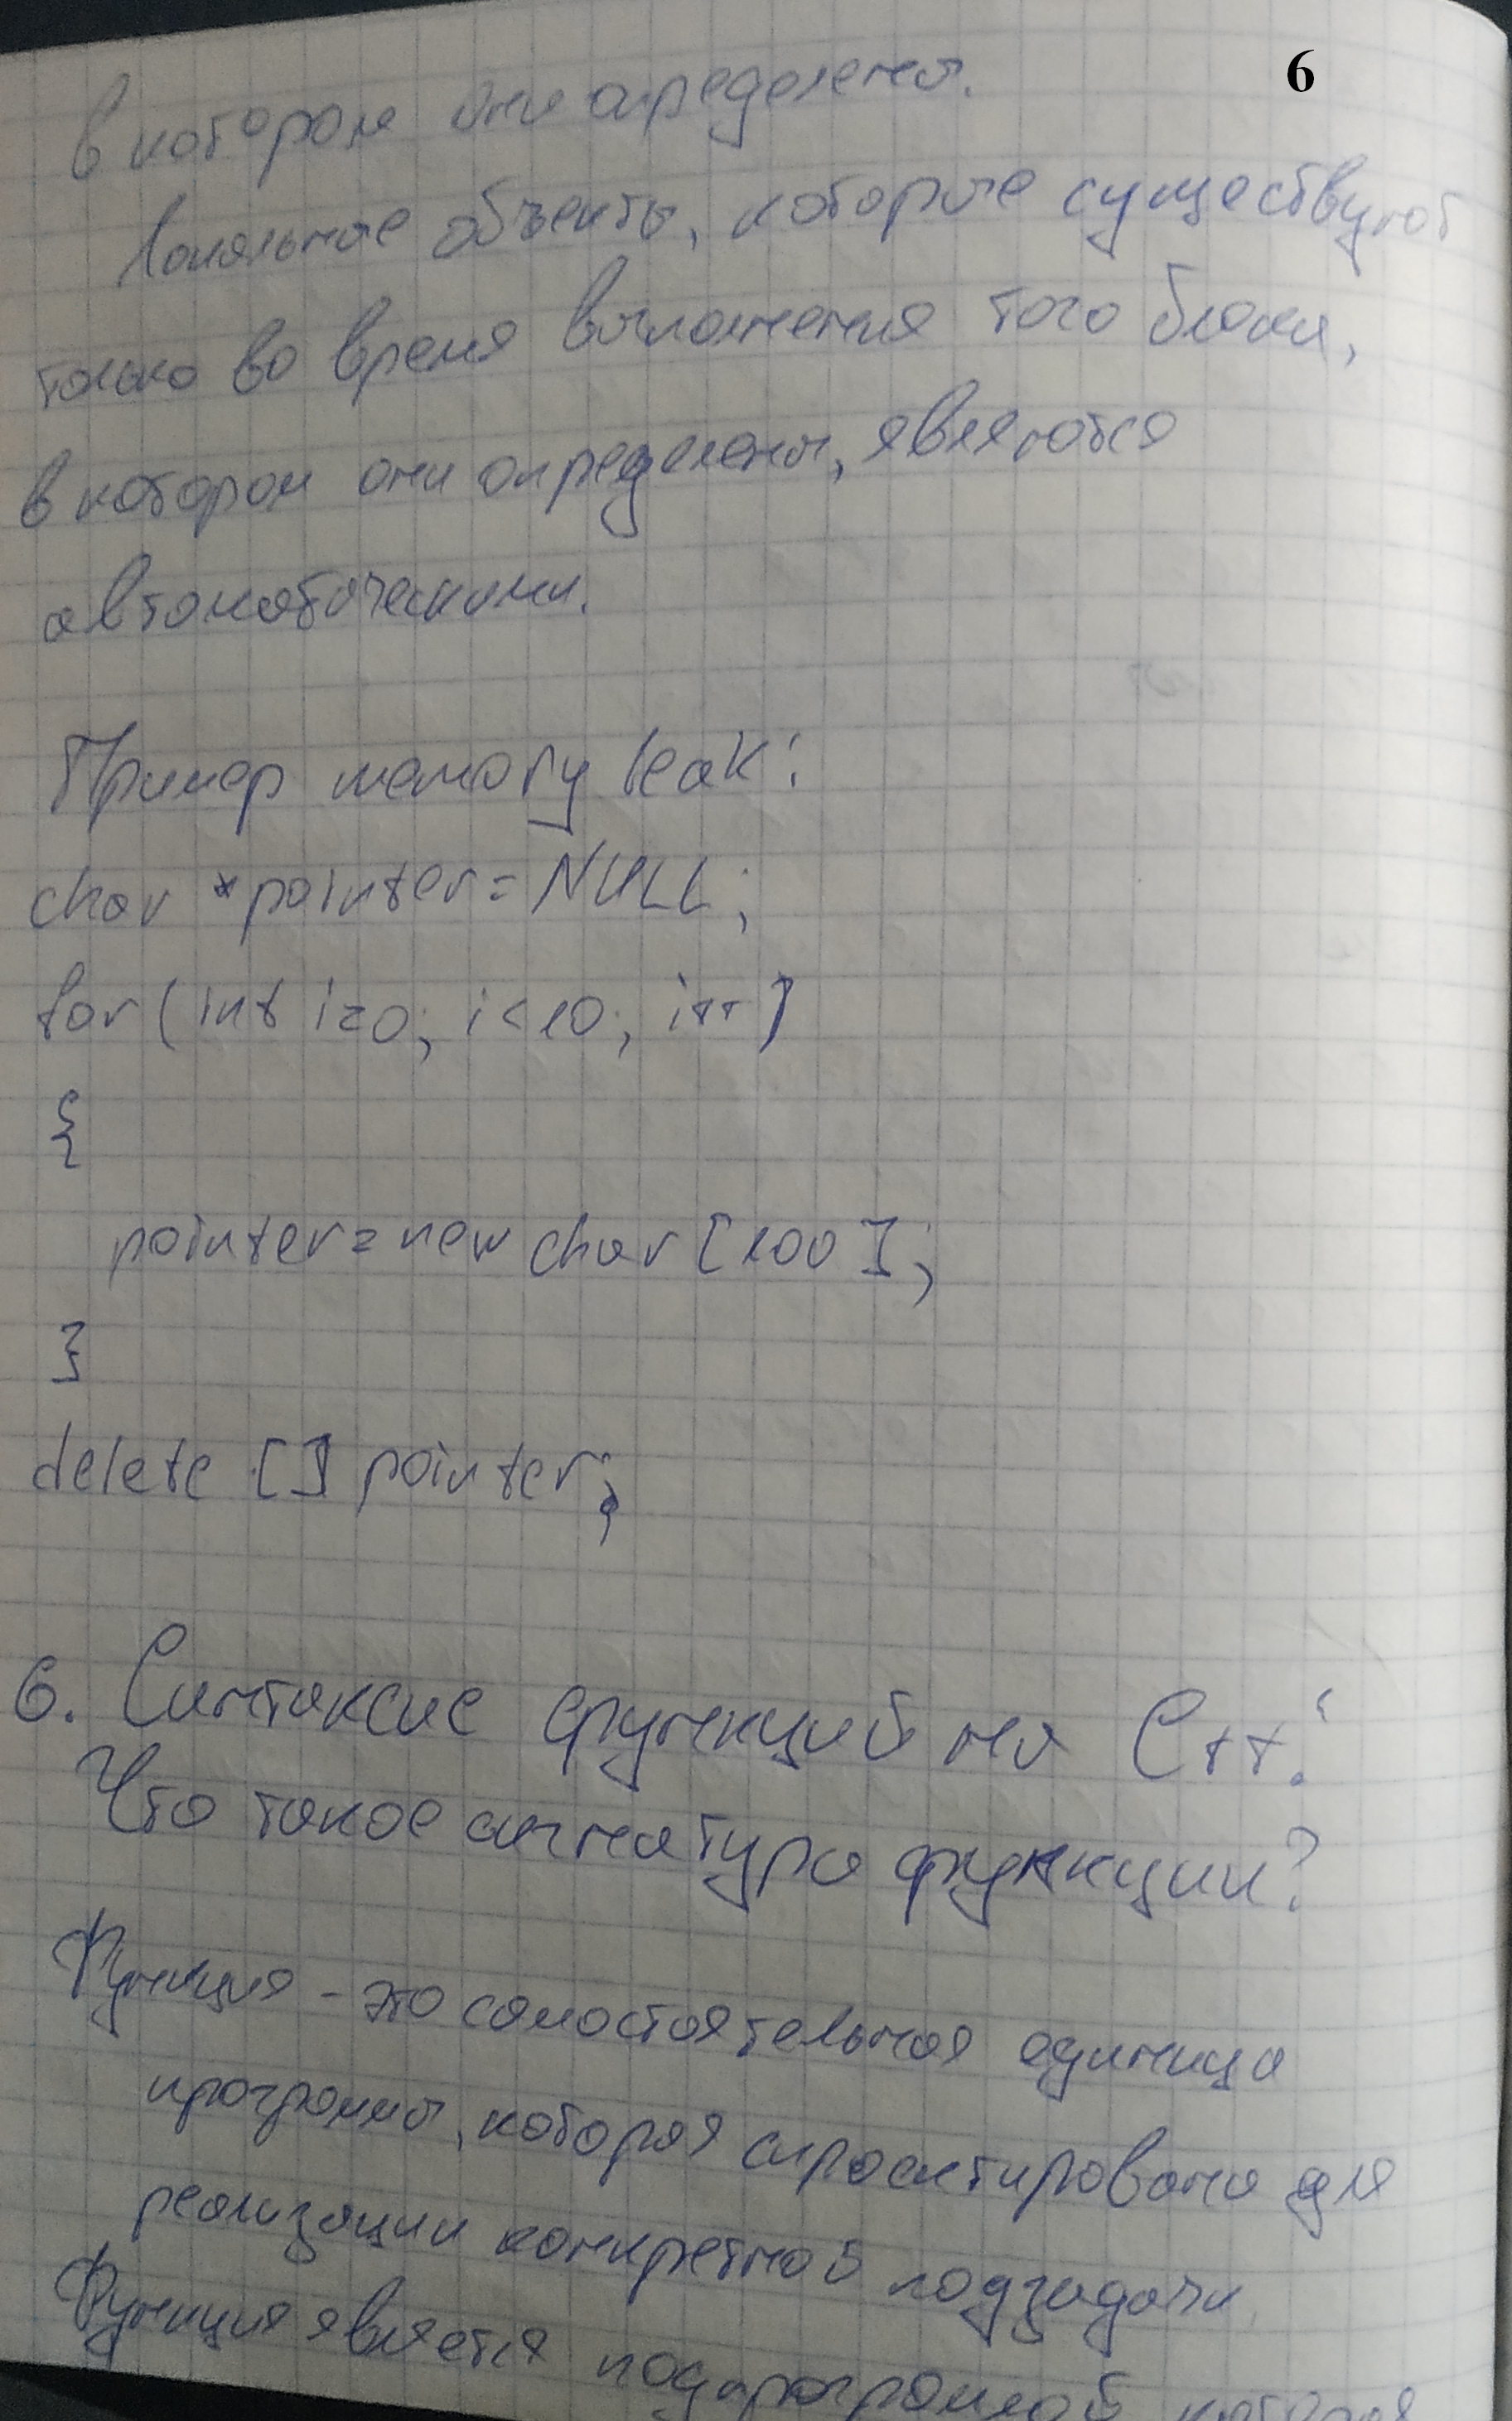 6
в котором они определены.
Локальные объекты, которые существуют
только во время выполнения того блока,
в котором они определены, являются
автоматическими.
Пример memory leak:
char *pointer = NULL;
for (int i=0; i<10; i++)
{
pointer = new char [100];
}
delete [] pointer;
6. Синтаксис функций на C++.
Что такое сигнатура функции?
Функция - это самостоятельная единица
программы, которая спроектирована для
реализации конкретной подзадачи
Функция является подпрограммой которая